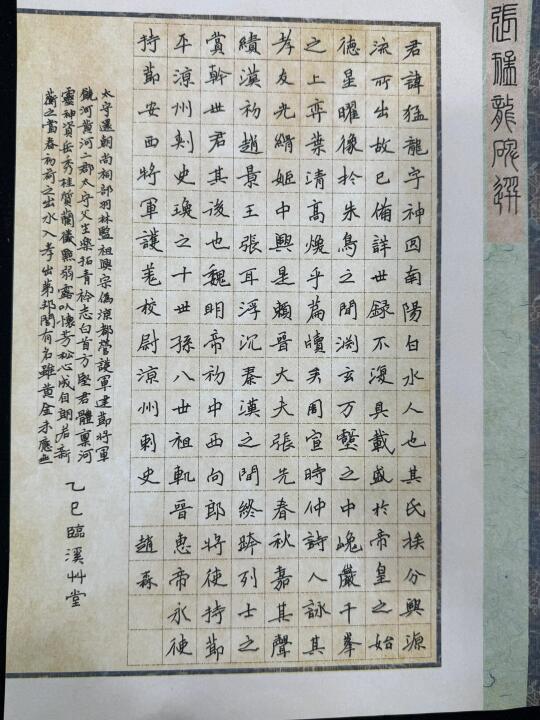 張猛龍碑選
君諱猛龍字神囧南陽白水人也其氏族分興源
流所出故已備詳世錄不復具載盛於帝皇之始
德星曜像於朱鳥之間淵玄万壑之中巉巖千峯
之上弈葉清高煥乎篇牘矣周宣時仲詩人詠其
孝友光緝姬中興是賴晉大夫張先春秋嘉其聲
績漢初趙景王張耳浮沉秦漢之間終跨列士之
賞幹世君其後也魏明帝初中西向郎將使持節
平涼州刾史瑍之十世孫八世祖軌晉惠帝永
持節安西將軍護羗校尉涼州刺史 趙森
太守遷朝尚祠部羽林監祖興宗偽涼都營護軍建節將軍
饒河黃河二郡太守父生樂拓青衿志白首方堅君體稟河
靈神資岳秀桂質蘭儀點弱露以懷芳松心成自朗若新
蘅之當春初荷之出水入孝出第邦閭有名雖黃金未應無
乙巳臨溪艸堂